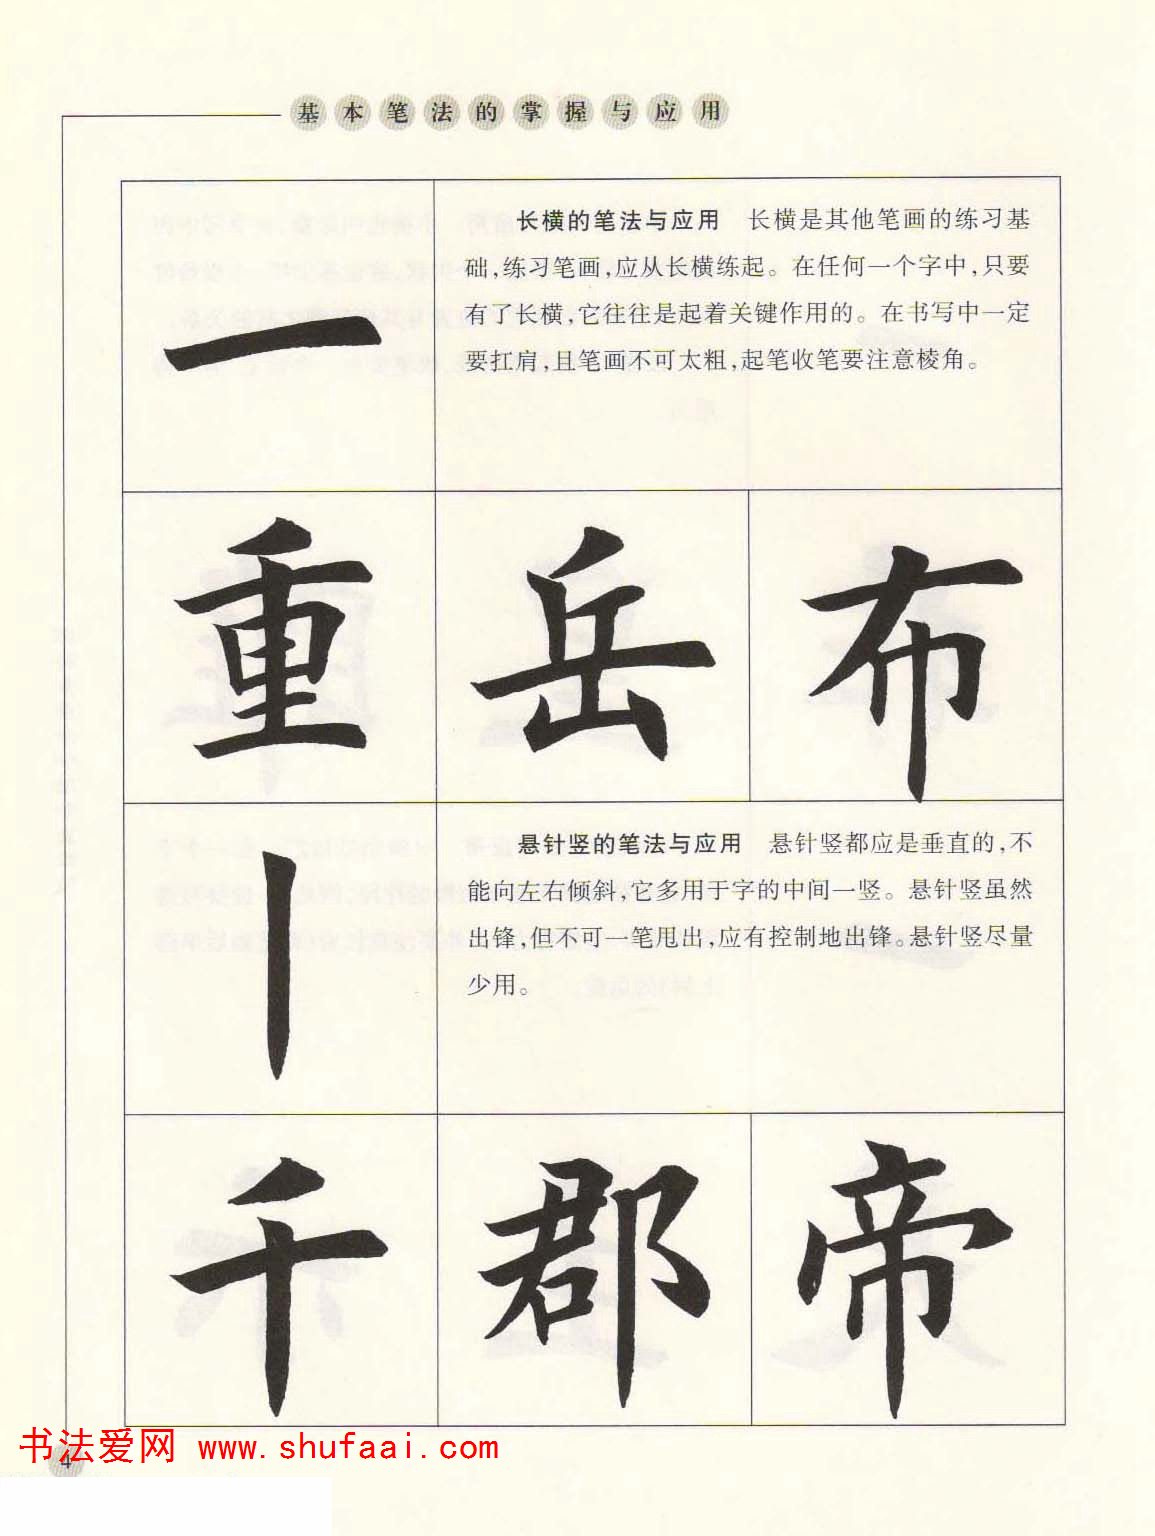 基本笔法的掌握与应用
一
长横的笔法与应用 长横是其他笔画的练习基
础,练习笔画,应从长横练起。在任何一个字中,只要
有了长横,它往往是起着关键作用的。在书写中一定
要扛肩,且笔画不可太粗,起笔收笔要注意棱角。
重 岳 布
丨
悬针竖的笔法与应用 悬针竖都应是垂直的,不
能向左右倾斜,它多用于字的中间一竖。悬针竖虽然
出锋,但不可一笔甩出,应有控制地出锋。悬针竖尽量
少用。
千 郡 帝
书法爱网 www.shufaai.com
4